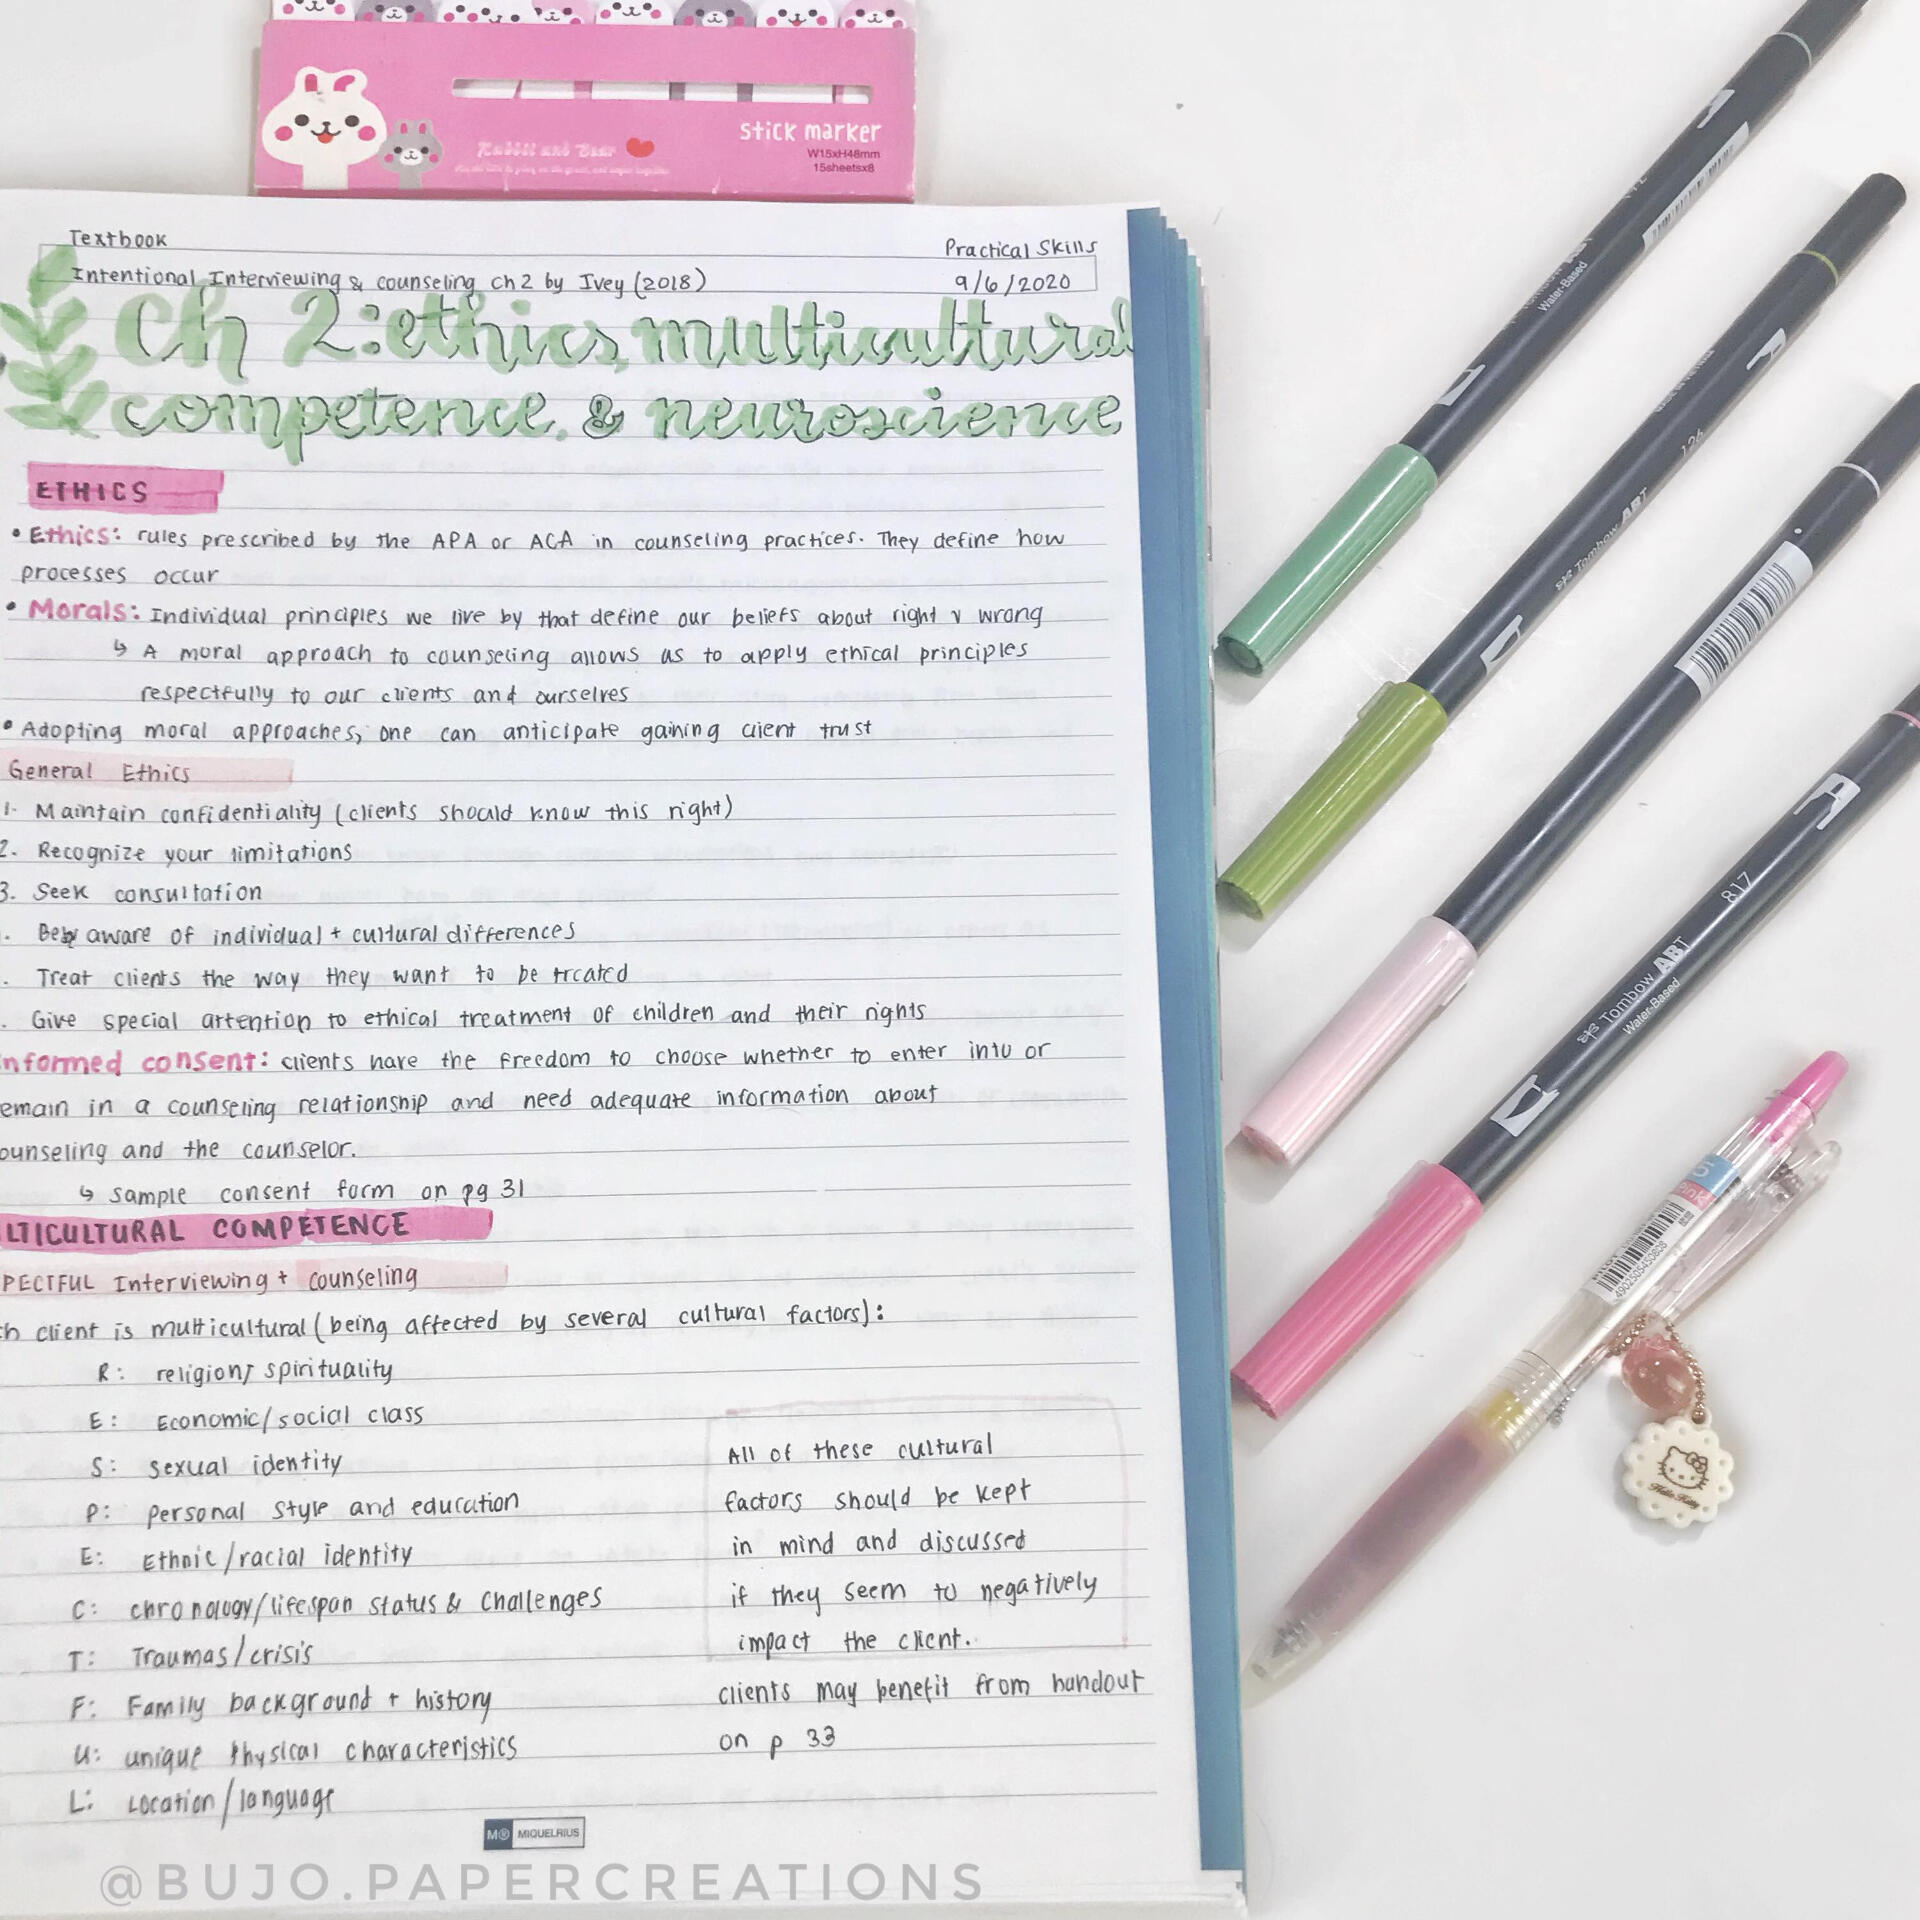 stick marker
Rabbit and Bear
W15xH48mm
15sheetsx8
Textbook
Practical Skills
Intentional Interviewing & counseling Ch 2 by Ivey (2018)
9/6/2020
Ch 2: ethics, multicultural
competence, & neuroscience
ETHICS
• Ethics: rules prescribed by the APA or ACA in counseling practices. They define how
processes occur
• Morals: Individual principles we live by that define our beliefs about right v wrong
↳ A moral approach to counseling allows us to apply ethical principles
respectfully to our clients and ourselves
• Adopting moral approaches, one can anticipate gaining client trust
General Ethics
1. Maintain confidentiality (clients should know this right)
2. Recognize your limitations
3. Seek consultation
. Be aware of individual + cultural differences
. Treat clients the way they want to be treated
. Give special attention to ethical treatment of children and their rights
nformed consent: clients have the freedom to choose whether to enter into or
emain in a counseling relationship and need adequate information about
ounseling and the counselor.
↳ Sample consent form on pg 31
LTICULTURAL COMPETENCE
PECTFUL Interviewing + counseling
ch client is multicultural (being affected by several cultural factors):
R: religion/spirituality
E: Economic/social class
S: sexual identity
P: personal style and education
E: Ethnic/racial identity
C: chronology/lifespan status & challenges
T: Traumas/crisis
F: Family background + history
U: unique physical characteristics
L: Location/language
All of these cultural
factors should be kept
in mind and discussed
if they seem to negatively
impact the client.
clients may benefit from handout
on p 33
M® MIQUELRIUS
@BUJO.PAPERCREATIONS
Water-Based
126
Tombow ABT
817
Tombow ABT
Water-Based
PILOT
Pink
4902505450808
Hello Kitty